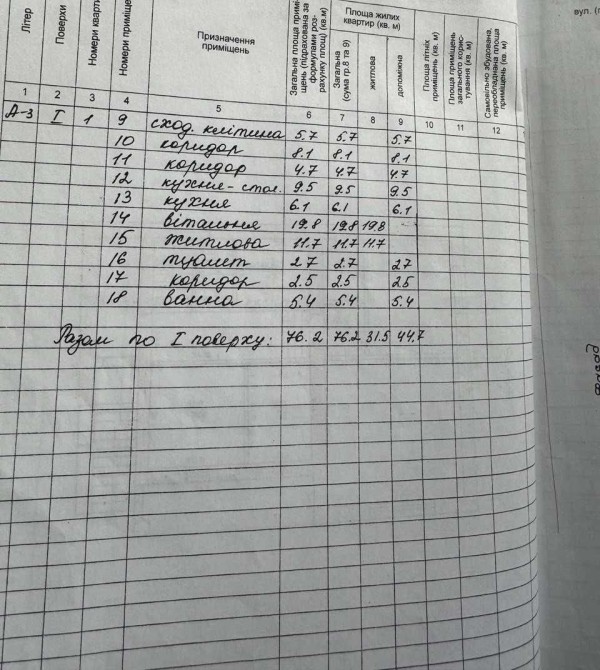 вул. (
Літер
Поверхи
Номери кварти
Номери приміще
Призначення
приміщень
Загальна площа примі-
щень (підрахована за
формулами роз-
рахунку площ) (кв.м)
Площа жилих
квартир (кв. м)
Загальна
(сума гр.8 та 9)
житлова
допоміжна
Площа літніх
приміщень (кв. м)
Площа приміщень
загального корис-
тування (кв. м)
Самовільно збудована,
переобладнана площа
приміщень (кв. м)
1 2 3 4 5 6 7 8 9 10 11 12
А-3 I 1 9 сход. клітина 5.7 5.7 5.7
10 коридор 8.1 8.1 8.1
11 коридор 4.7 4.7 4.7
12 кухня-стол. 9.5 9.5 9.5
13 кухня 6.1 6.1 6.1
14 вітальня 19.8 19.8 19.8 -
15 житлова 11.7 11.7 11.7
16 туалет 2.7 2.7 2.7
17 коридор 2.5 2.5 2.5
18 ванна 5.4 5.4 5.4
Разом по I поверху: 76.2 76.2 31.5 44.7